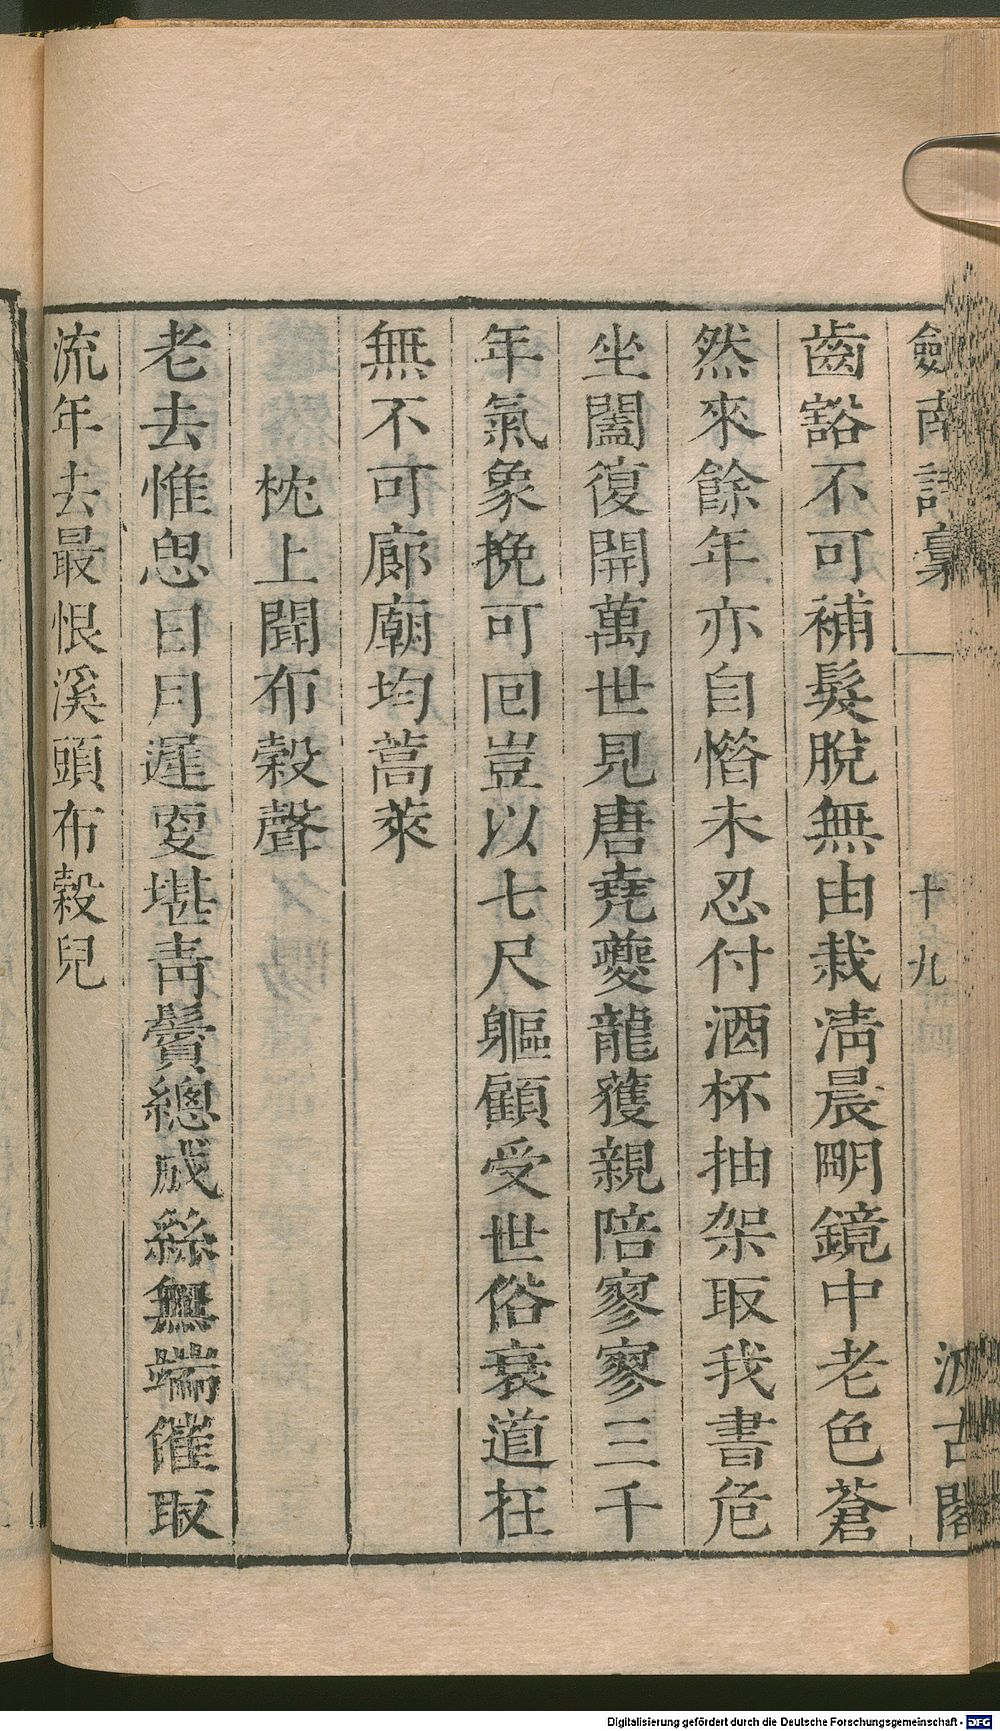 劒南詩藁
十九
汲古閣
齒豁不可補髮脫無由栽淸晨明鏡中老色蒼
然來餘年亦自惜未忍付酒杯抽架取我書危
坐闔復開萬世見唐堯夔龍獲親陪寥寥三千
年氣象挽可回豈以七尺軀顧受世俗衰道在
無不可廊廟均蒿萊
枕上聞布穀聲
老去惟思日月遲更堪靑鬢總成絲無端催取
流年去最恨溪頭布穀兒
Digitalisierung gefördert durch die Deutsche Forschungsgemeinschaft - DFG